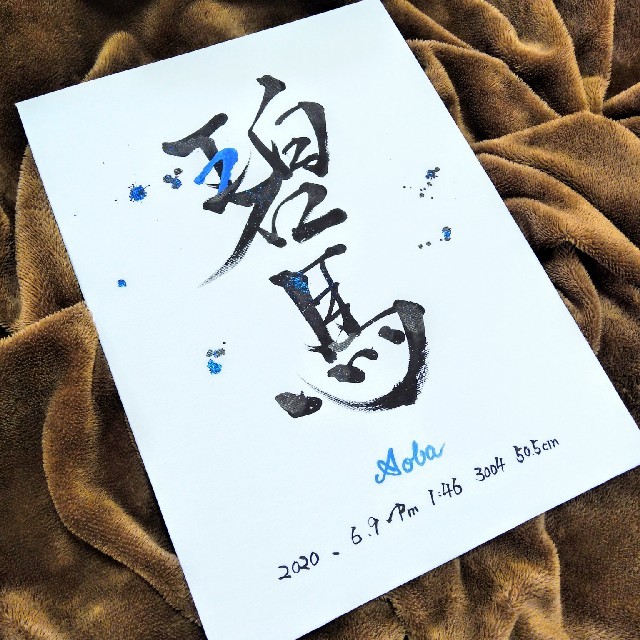 碧馬
Aoba
2020. 6.9 Pm 1:46 3004 50.5cm